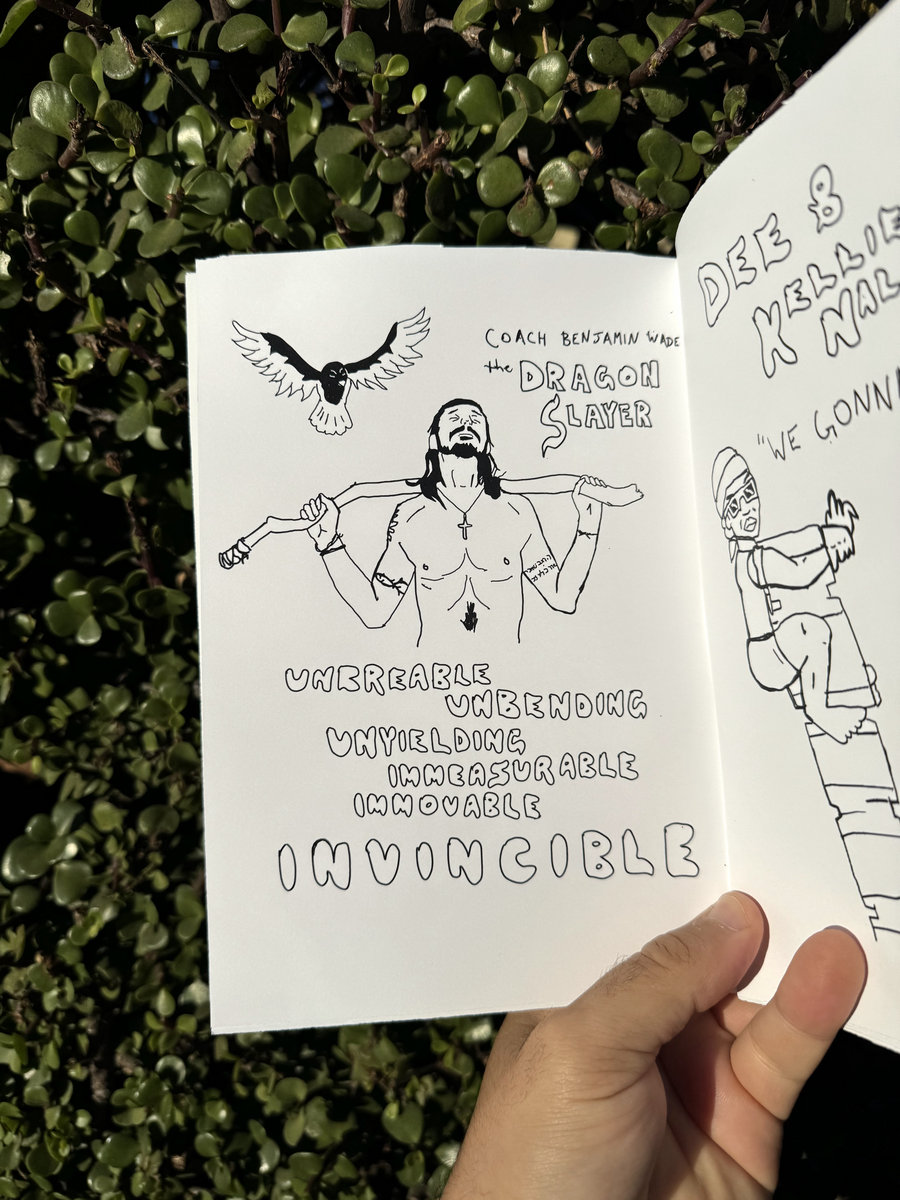 COACH BENJAMIN WADE
the DRAGON
SLAYER
UNBREABLE
UNBENDING
UNYIELDING
IMMEASURABLE
IMMOVABLE
INVINCIBLE
DEE &
KELLIE
NAL
"WE GONNA